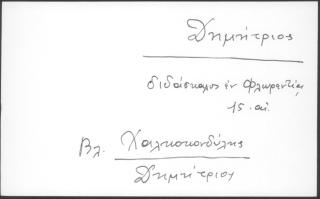 Δημήτριος
διδάσκαλος ἐν Φλωρεντίᾳ
15. αἰ.
Βλ. Χαλκοκονδύλης
Δημήτριος